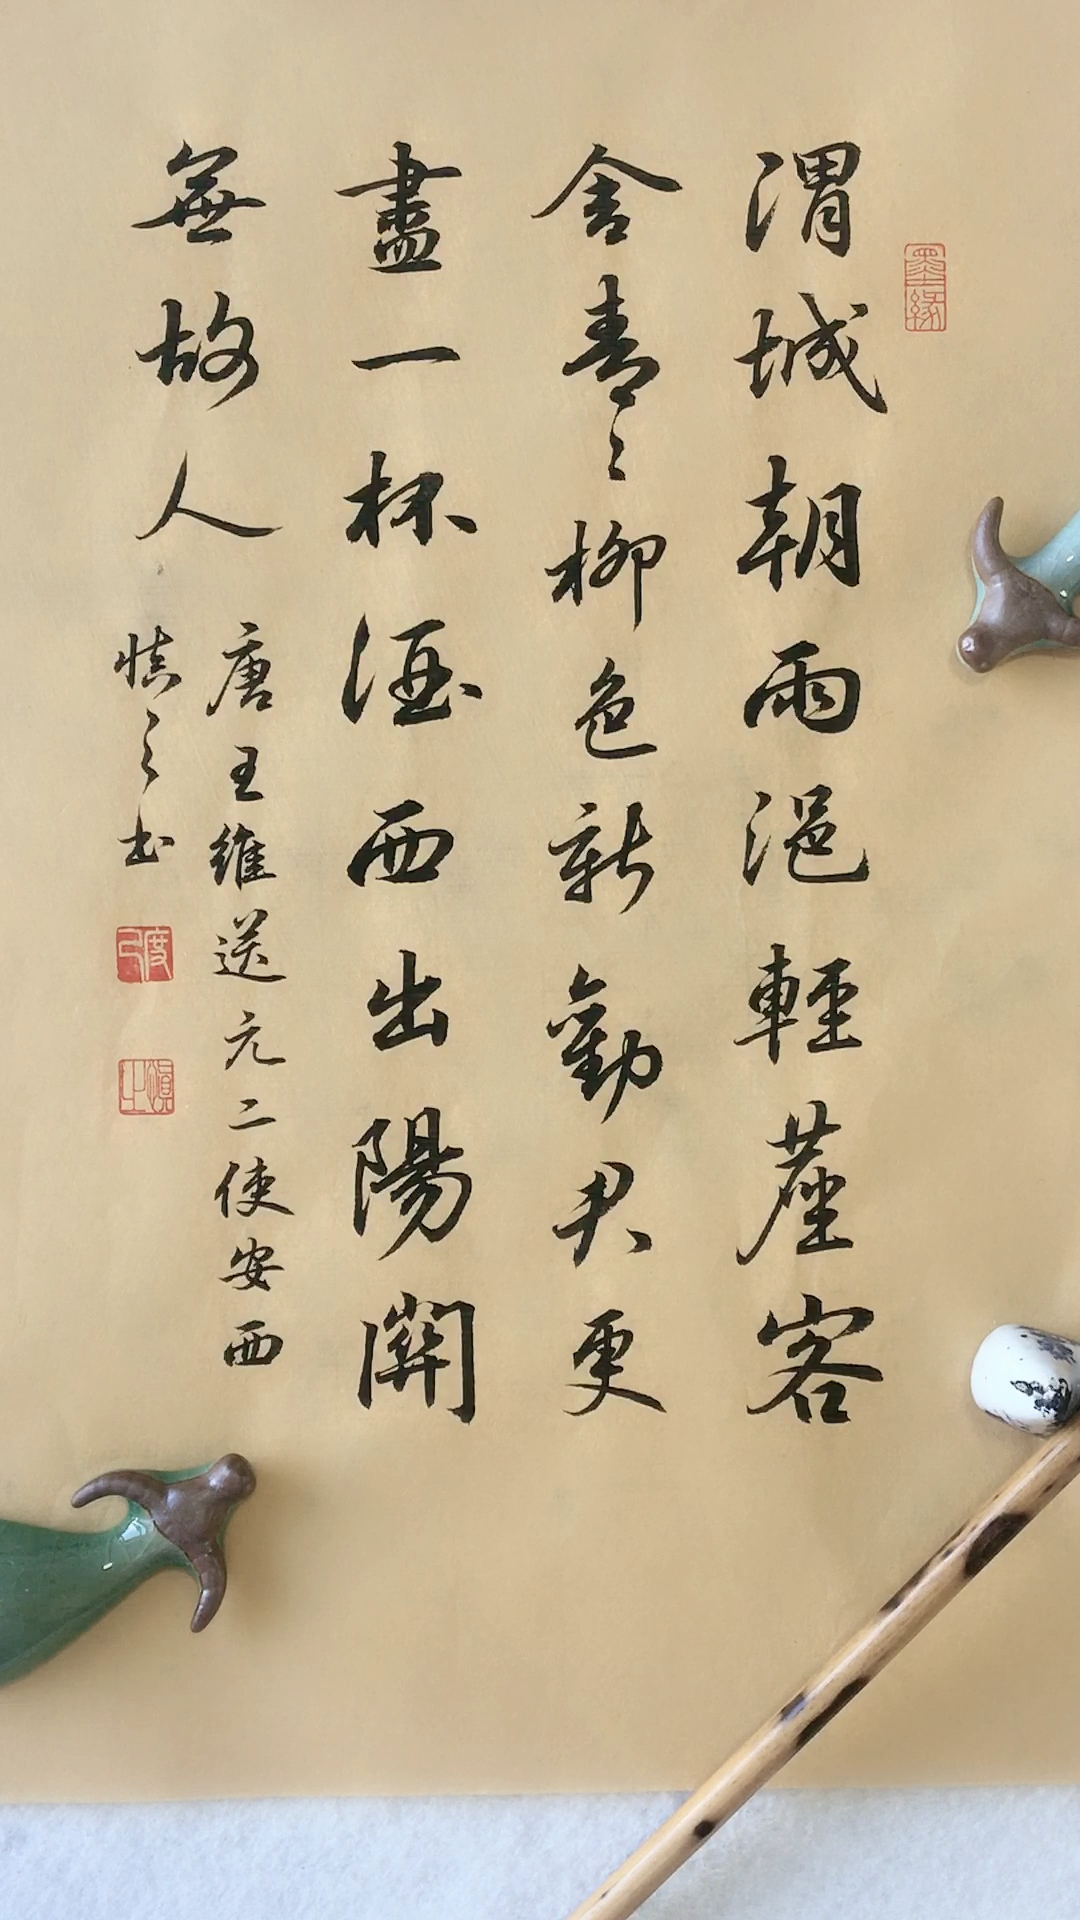 渭城朝雨浥輕塵客
舍青々柳色新勸君更
盡一杯酒西出陽關
無故人
唐王維送元二使安西
慎之書
墨緣
慎之